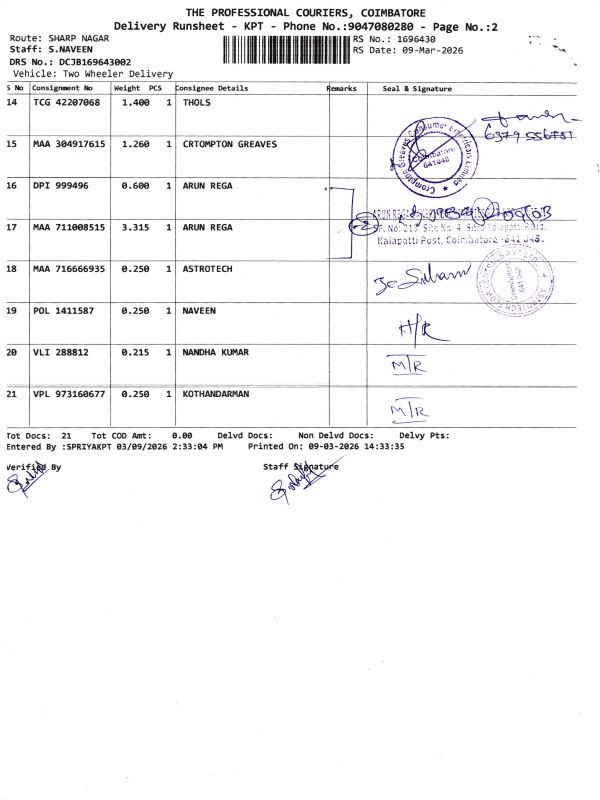 THE PROFESSIONAL COURIERS, COIMBATORE
Delivery Runsheet - KPT - Phone No.:9047080280 - Page No.:2
Route: SHARP NAGAR RS No.: 1696430
Staff: S.NAVEEN RS Date: 09-Mar-2026
DRS No.: DCJB169643002
Vehicle: Two Wheeler Delivery
S No Consignment No Weight PCS Consignee Details Remarks Seal & Signature
14 TCG 42207068 1.400 1 THOLS
6379 556781
15 MAA 304917615 1.260 1 CRTOMPTON GREAVES
Crompton Greaves Consumer Electricals Limited
Coimbatore
641048
16 DPI 999496 0.600 1 ARUN REGA
ARUN REGA
17 MAA 711008515 3.315 1 ARUN REGA
SF. No: 213 Site No 4,
Kalapatti Post, Coimbatore -641 048.
18 MAA 716666935 0.250 1 ASTROTECH
Coimbatore
19 POL 1411587 0.250 1 NAVEEN
H/R
20 VLI 288812 0.215 1 NANDHA KUMAR
M/R
21 VPL 973160677 0.250 1 KOTHANDARMAN
M/R
Tot Docs: 21 Tot COD Amt: 0.00 Delvd Docs: Non Delvd Docs: Delvy Pts:
Entered By :SPRIYAKPT 03/09/2026 2:33:04 PM Printed On: 09-03-2026 14:33:35
Verified By Staff Signature